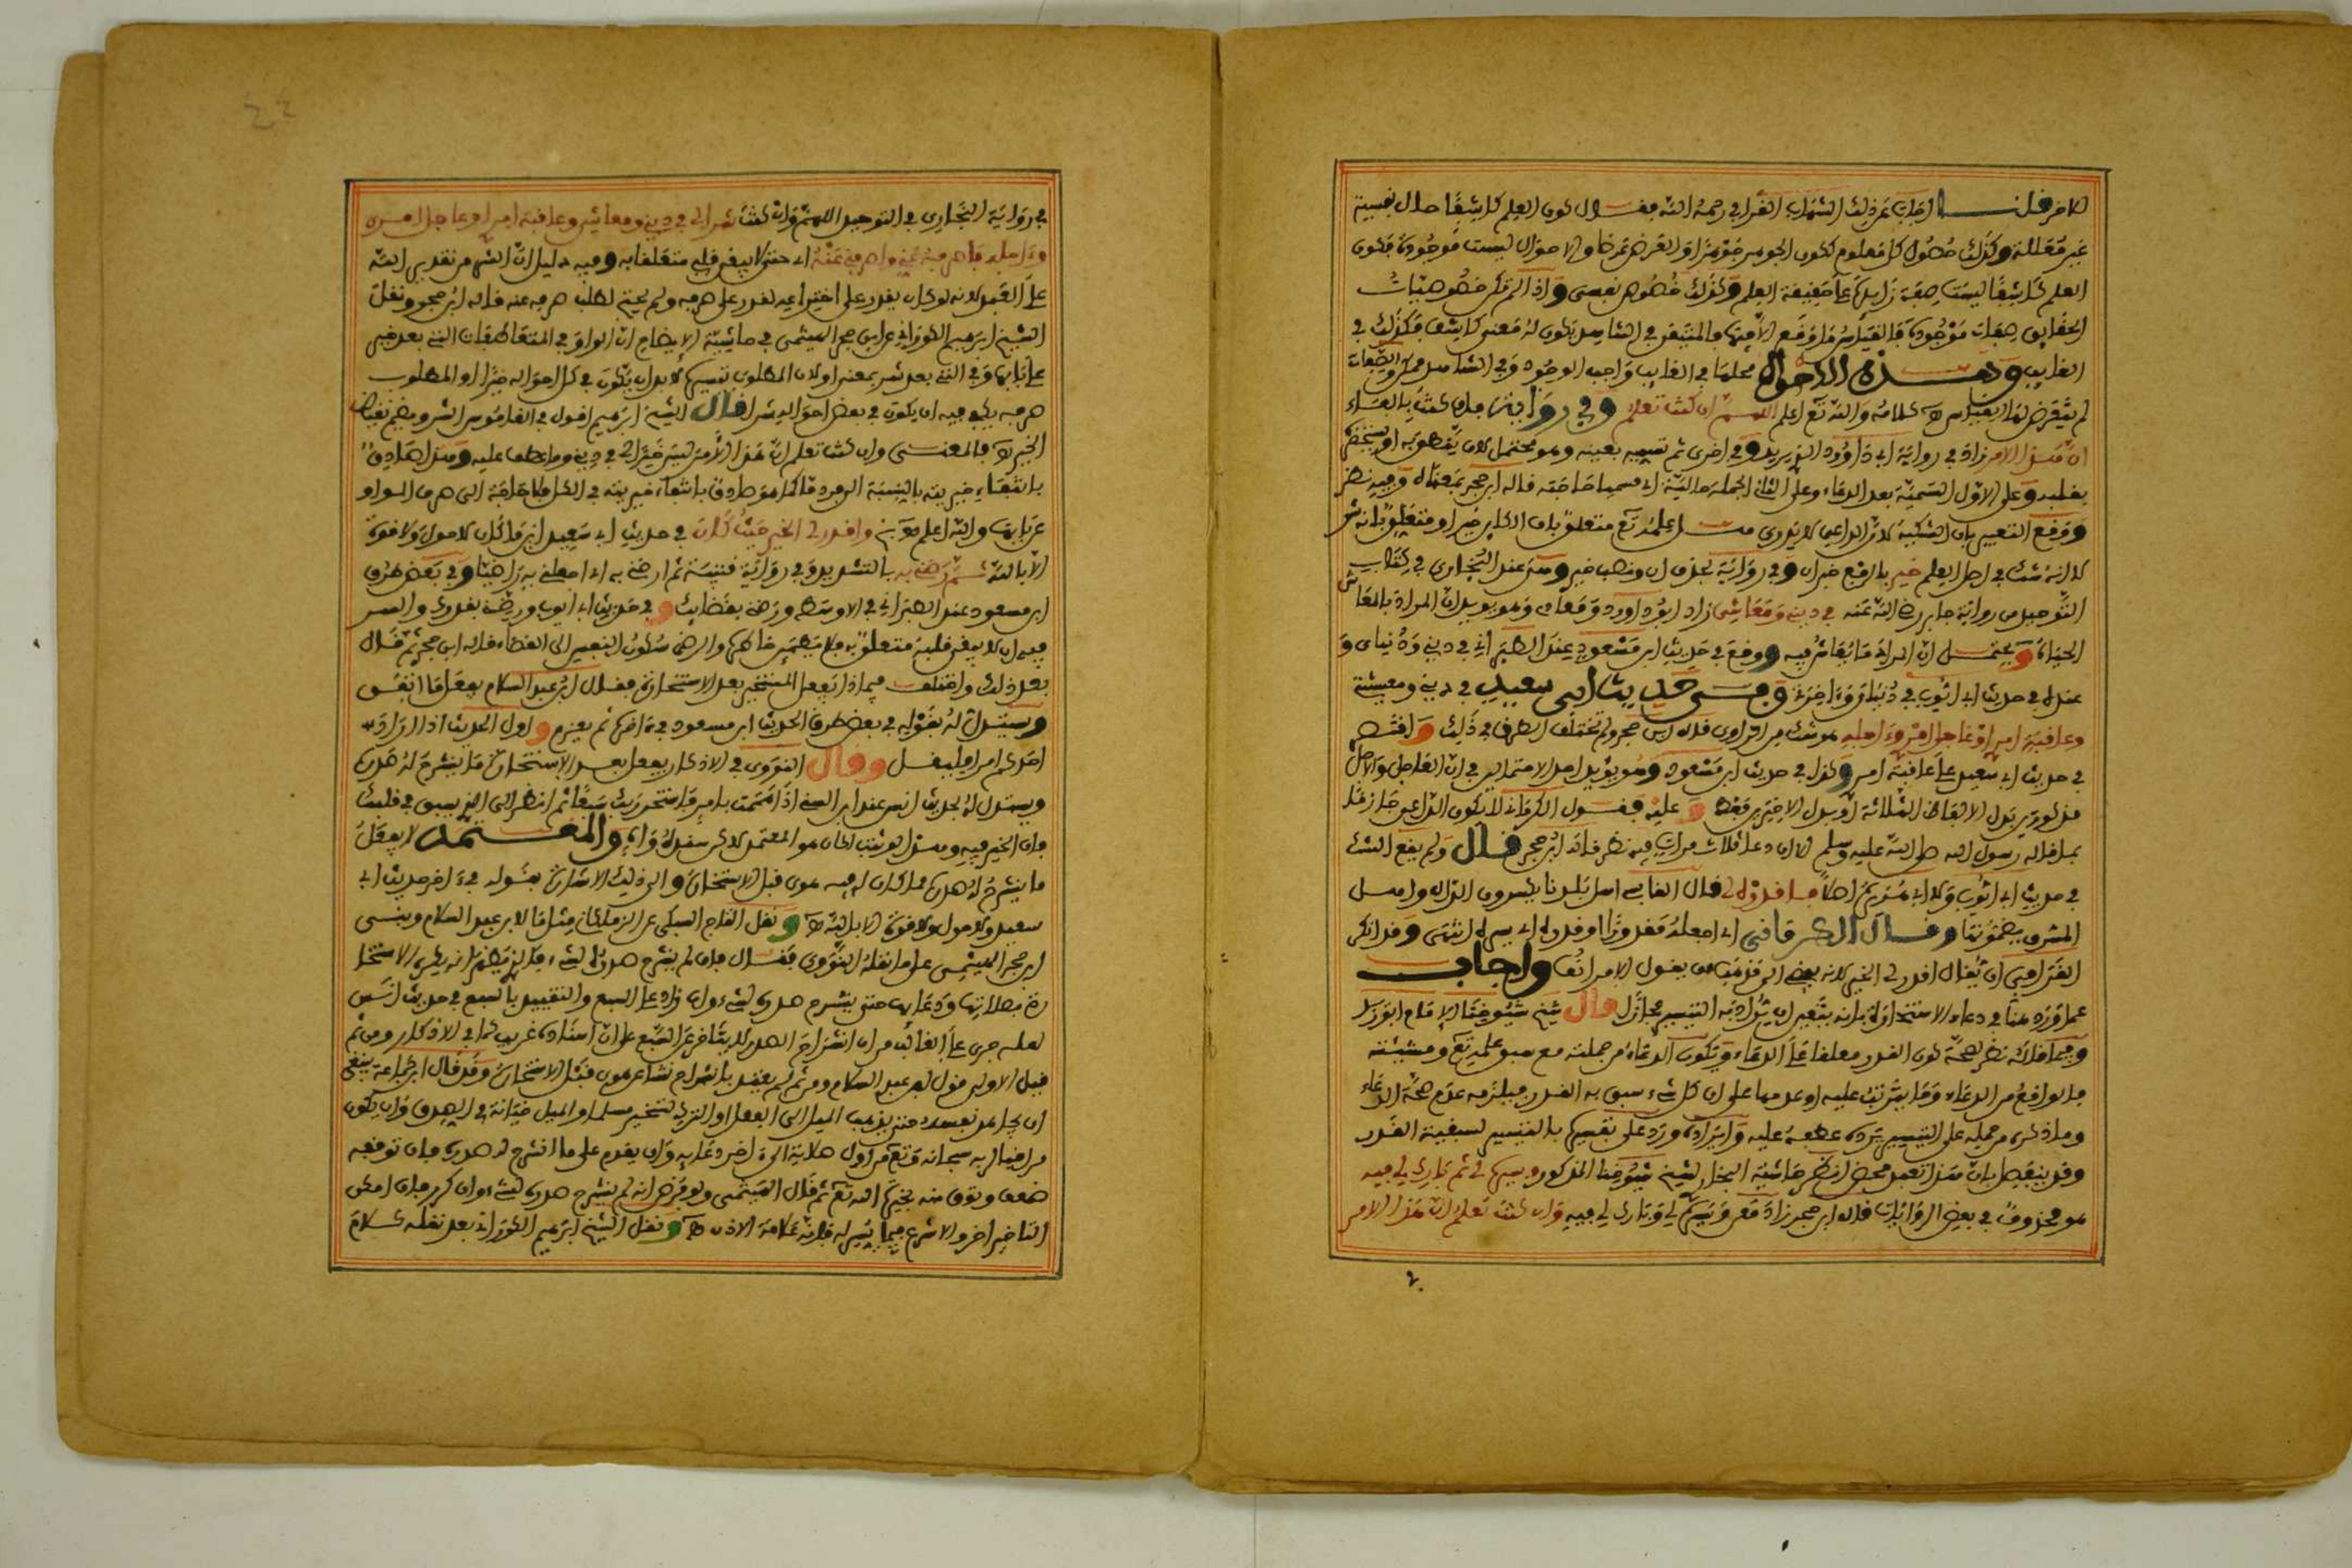 لاخر قلنا اجاب عن ذلك الشهاب القرافي رحمه الله فقال كون العلم كاشفا حال نفسية
غير معللة وكذلك حصول كل معلوم ككون الجوهر جوهرا والعرض عرضا والاحوال ليست موجودة فكون
العلم كاشفا ليست صفة زايدة على حقيقة العلم وكذلك خصوص نفسي واذا لم تكن خصوصيات
الحقايق صفات موجودة فالقياس ما وقع الا والمتيقن في الشاهد يكون له معنى كاشف فكذلك في
الغايب وهذه الاحوال محلها في الغايب واجب الوجود وفي الشاهد ممكن والصفات
لم يتعرض لها القياس هـ كلامه والله تع اعلم اللهم ان كنت تعلم وفي رواية فان كنت بالفاء
ان هذا الامر زاد في رواية ابي داوود الذي يريد وفي اخرى ثم تسميه بعينه وهو محتمل لان ينطق به او يستحضره
بقلبه وعلى الاول التسمية بعد الدعاء وعلى الثاني الجملة حالية اي مسميا حاجته قاله ابن حجر بمعناه وفيه نظر
ووقع التعبير بان الشكية لان الداعي لا يدري هل علمه تع متعلق بان الكاين خير او متعلق بانه شر
لا انه شك في اصل العلم خير بالرفع خبر ان وفي رواية بحذف ان ونصب خير وهي عند البخاري في كتاب
التوحيد من رواية جابر رضي الله عنه في ديني ومعاشي زاد ابو داوود ومعادي وهو يويد ان المراد بالمعاش
الحياة ويحتمل ان المراد ما يعاش فيه ووقع في حديث ابن مسعود عند الطبراني في ديني ودنياي و
عنده في حديث ابي ايوب في دنياي وءاخرتي وفي حديث ابي سعيد في ديني ومعيشتي
وعاقبة امري او عاجل امري وءاجله هو شك من الراوي قاله ابن حجر ولم تختلف الطرق في ذلك واقتصر
في حديث ابي سعيد على عاقبة امري وكذا في حديث ابن مسعود وهو يويد احد الاحتمالين في ان العاجل والاجل
مذكورين بدل الالفاظ الثلاثة او بدل الاخيرين فقط وعليه فقول الكرماني لا يكون الداعي جازما
بما قاله رسول الله صلى الله عليه وسلم الا ان دعا ثلاث مرات فيه نظر قاله ابن حجر قال ولم يقع الشك
في حديث ابي ايوب ولا ابي هريرة اصلا فاقدره لي قال القابسي اهل بلدنا يكسرون الدال واهل
المشرق يضمونها وقال الكرماني اي اجعله مقدورا لي او قدره اي يسره انتهى وقد انكر
القرافي ان يقال اقدر لي الخير لانه يفضي الى مذهب من يقول الامر انف واجاب
عما ورد هنا في دعاء الاستخارة بانه يتعين ان يراد به التيسير مجازا قال شيخ شيوخنا الامام ابو زيد
وفيما قاله نظر لصحة كون القدر معلقا على الدعاء ويكون الدعاء من جملته مع سبق علمه تع ومشيئته
بالواقع من الدعاء وما يترتب عليه او عدمهما على ان كل شيء سبق به القدر فيلزمه عدم صحة الدعاء
وما ذكره من حمله على التيسير يرده عطفه عليه وايراده ورد على تفسيرها بالتيسير لسبقية القدر
وقد ينفصل بان هذا تعبد محض انظر حاشية البخاري لشيخ شيوخنا المذكور ويسره لي ثم بارك لي فيه
هو محذوف في بعض الروايات قاله ابن حجر زاد معن ويسره لي وبارك لي فيه وان كنت تعلم ان هذا الامر
في رواية البخاري في التوحيد اللهم وان كنت شر لي في ديني ومعاشي وعاقبة امري او عاجل امري
وءاجله فاصرفه عني واصرفني عنه اي حتى لا يبقى قلبي متعلقا به وفيه دليل ان الشر من تقدير الله
على العبد لانه لو كان يقدر على اختراعه لقدر على صرفه ولم يحتج لطلب صرفه عنه قاله ابن حجر ونقل
الشيخ ابراهيم الكوراني عن ابن حجر الهيثمي في حاشية الايضاح ان الواو في المتعاطفات التي بعد خير
على بابها وفي التي بعد شر بمعنى او لان المطلوب تيسيره لا بد ان يكون في كل احواله خيرا او المطلوب
صرفه يكفي فيه ان يكون في بعض احواله شرا قال الشيخ ابراهيم اقول في القاموس الشر ويضم نقيض
الخير هـ فالمعنى وان كنت تعلم ان هذا الامر ليس خيرا لي في ديني وما عطف عليه وهذا صادق
بانتفاء خيريته بالنسبة الى فرد ما كما هو صادق بانتفاء خيريته في الكل فلا حاجة الى صرف الواو
عن بابها والله اعلم واقدر لي الخير حيث كان في حديث ابي سعيد اين ما كان لا حول ولا قوة
الا بالله ثم رضني به بالتشديد وفي رواية قتيبة ثم ارضني به اي اجعلني به راضيا وفي بعض طرق
ابن مسعود عند الطبراني في الاوسط ورضني بقضايك وفي حديث ابي ايوب ورضني بقدرك والسر
فيه ان لا يبقى قلبه متعلقا به فلا يطمئن خاطره والرضى سكون النفس الى القضاء قاله ابن حجر ثم قال
بعد ذلك واختلف فيما اذا يفعل المستخير بعد الاستخارة فقال ابن عبد السلام يفعل ما اتفق
ويستدل له بقوله في بعض طرق الحديث ابن مسعود في ءاخره ثم يعزم واول الحديث اذا اراد
احدكم امرا فليقل وقال النووي في الاذكار يفعل بعد الاستخارة ما ينشرح له صدره
ويستدل له بحديث انس عند ابن السني اذا هممت بامر فاستخر ربك سبعا ثم انظر الى الذي يسبق في قلبك
فان الخير فيه وهذا لو ثبت لكان هو المعتمد لكن سنده واه والمعتمد لا يفعل
ما ينشرح له صدره مما كان له فيه هوى قبل الاستخارة والى ذلك الاشارة بقوله في ءاخر حديث ابي
سعيد ولا حول ولا قوة الا بالله هـ ونقل التاج السبكي عن الزملكاني مثل ما لابن عبد السلام وبنى
ابن حجر الهيثمي على ما نقله النووي فقال فان لم ينشرح صدره لشيء فالذي يظهر انه يكرر الاستخا
رة بصلاتها ودعايها حتى ينشرح صدره لشيء وان زاد على السبع والتقييد بالسبع في حديث انس
لعله جرى على الغالب من ان انشراح الصدر لا يتاخر عن السبع على ان اسناده غريب كما في الاذكار ومن ثم
قيل الاولى قول ابن عبد السلام ومن ثم لم يقيد بانشراح نشا عن هوى قبل الاستخارة وقد قال ابن جماعة ينبغي
ان يجاهد نفسه حتى يذهب الميل الى الفعل او الترك ليستخير مسلما والميل خيانة في الصدق وان يكون
مراقبا لربه سبحانه وتع من اول صلاته الى ءاخر دعايه وان يقدم على ما انشرح له صدره فان توقفه
ضعف وثوق منه بخيرة الله تع ثم قال الهيثمي ولو فرض انه لم ينشرح صدره لشيء وان كرر فان امكن
التاخير اخر والا شرع فيما يسر له فانه علامة الاذن هـ ونقل الشيخ ابراهيم الكوراني بعد نقله كلام